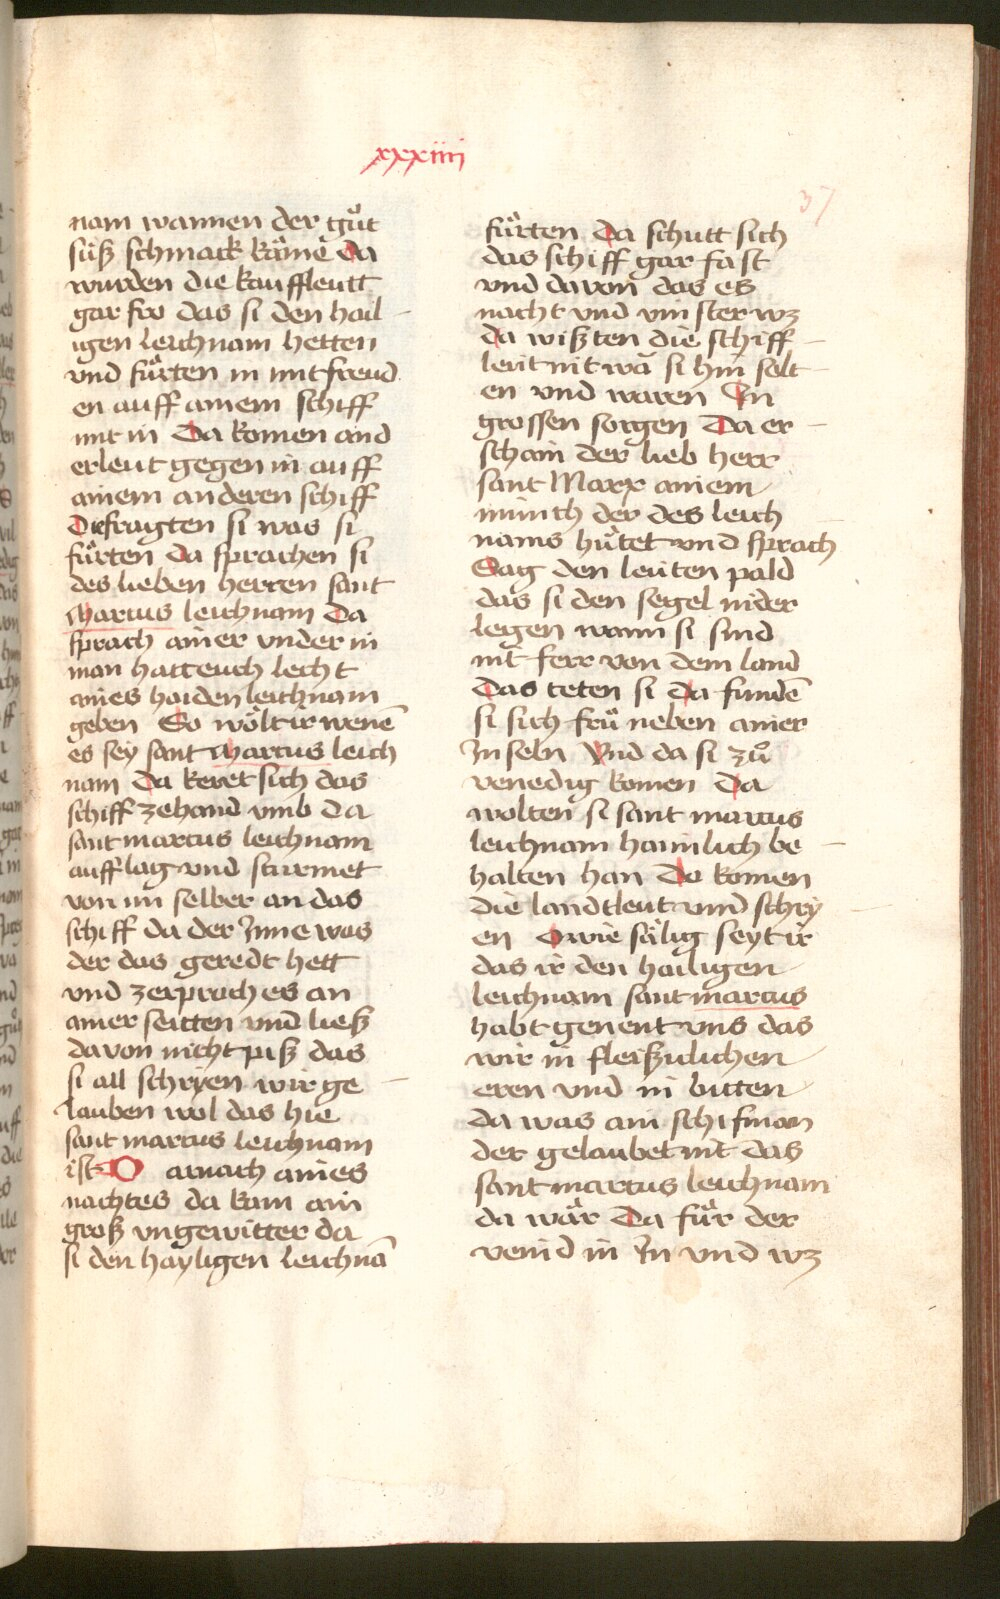 xxxiiii
37
nam wannen der guͦt
süß schmack käme da
wurden die kauffleutt
gar fro das si den hail
igen leichnam hetten
vnd fuͤrten in mit freud
en auff ainem schiff
mit in Da komen and
erleut gegen in auff
ainem anderen schiff
Die fragten si was si
fuͤrten da sprachen si
des lieben herren sant
Marcus leichnam Da
sprach ainer vnder in
man hatt euch lecht
aines haiden leichnam
geben So woͤlt ir wenē
es sey sant Marcus leich
nam da keret sich das
schiff zehand vmb da
sant marcus leichnam
auff lag vnd sturmet
von im selber an das
schiff da der Inne was
der das geredt hett
vnd zerprach es an
ainer seitten vnd ließ
davon nicht piß das
si all schryen wir ge
lauben wol das hie
sant marcus leichnam
ist Darnach aines
nachtes da kam ain
groß vngewitter da
si den hayligen leichnā
fuͤrten Da schutt sich
das schiff gar fast
vnd davon das es
nacht vnd vinster wz
da wißten die schiff
leut nit wa si hin solt
en vnd waren In
grossen sorgen Da er
schain der lieb herr
sant Marx ainem
münch der des leich
nams huͤtet vnd sprach
Sag den leuten pald
das si den segel nider
legen wann si sind
nit ferr von dem land
Das teten si Da fundē
si sich fruͤ neben ainer
Inseln Vnd da si zuͦ
venedig komen Da
wolten si sant marcus
leichnam haimlich be
halten han Da komen
die landtleut vnd schry
en O wie sälig seyt ir
das ir den hailigen
leichnam sant marcus
habt genent vns das
wir in fleißiclichen
eren vnd in bitten
da was ain schifman
der gelaubet nit das
sant marcus leichnam
da wär Da fuͤr der
veind in In vnd wz